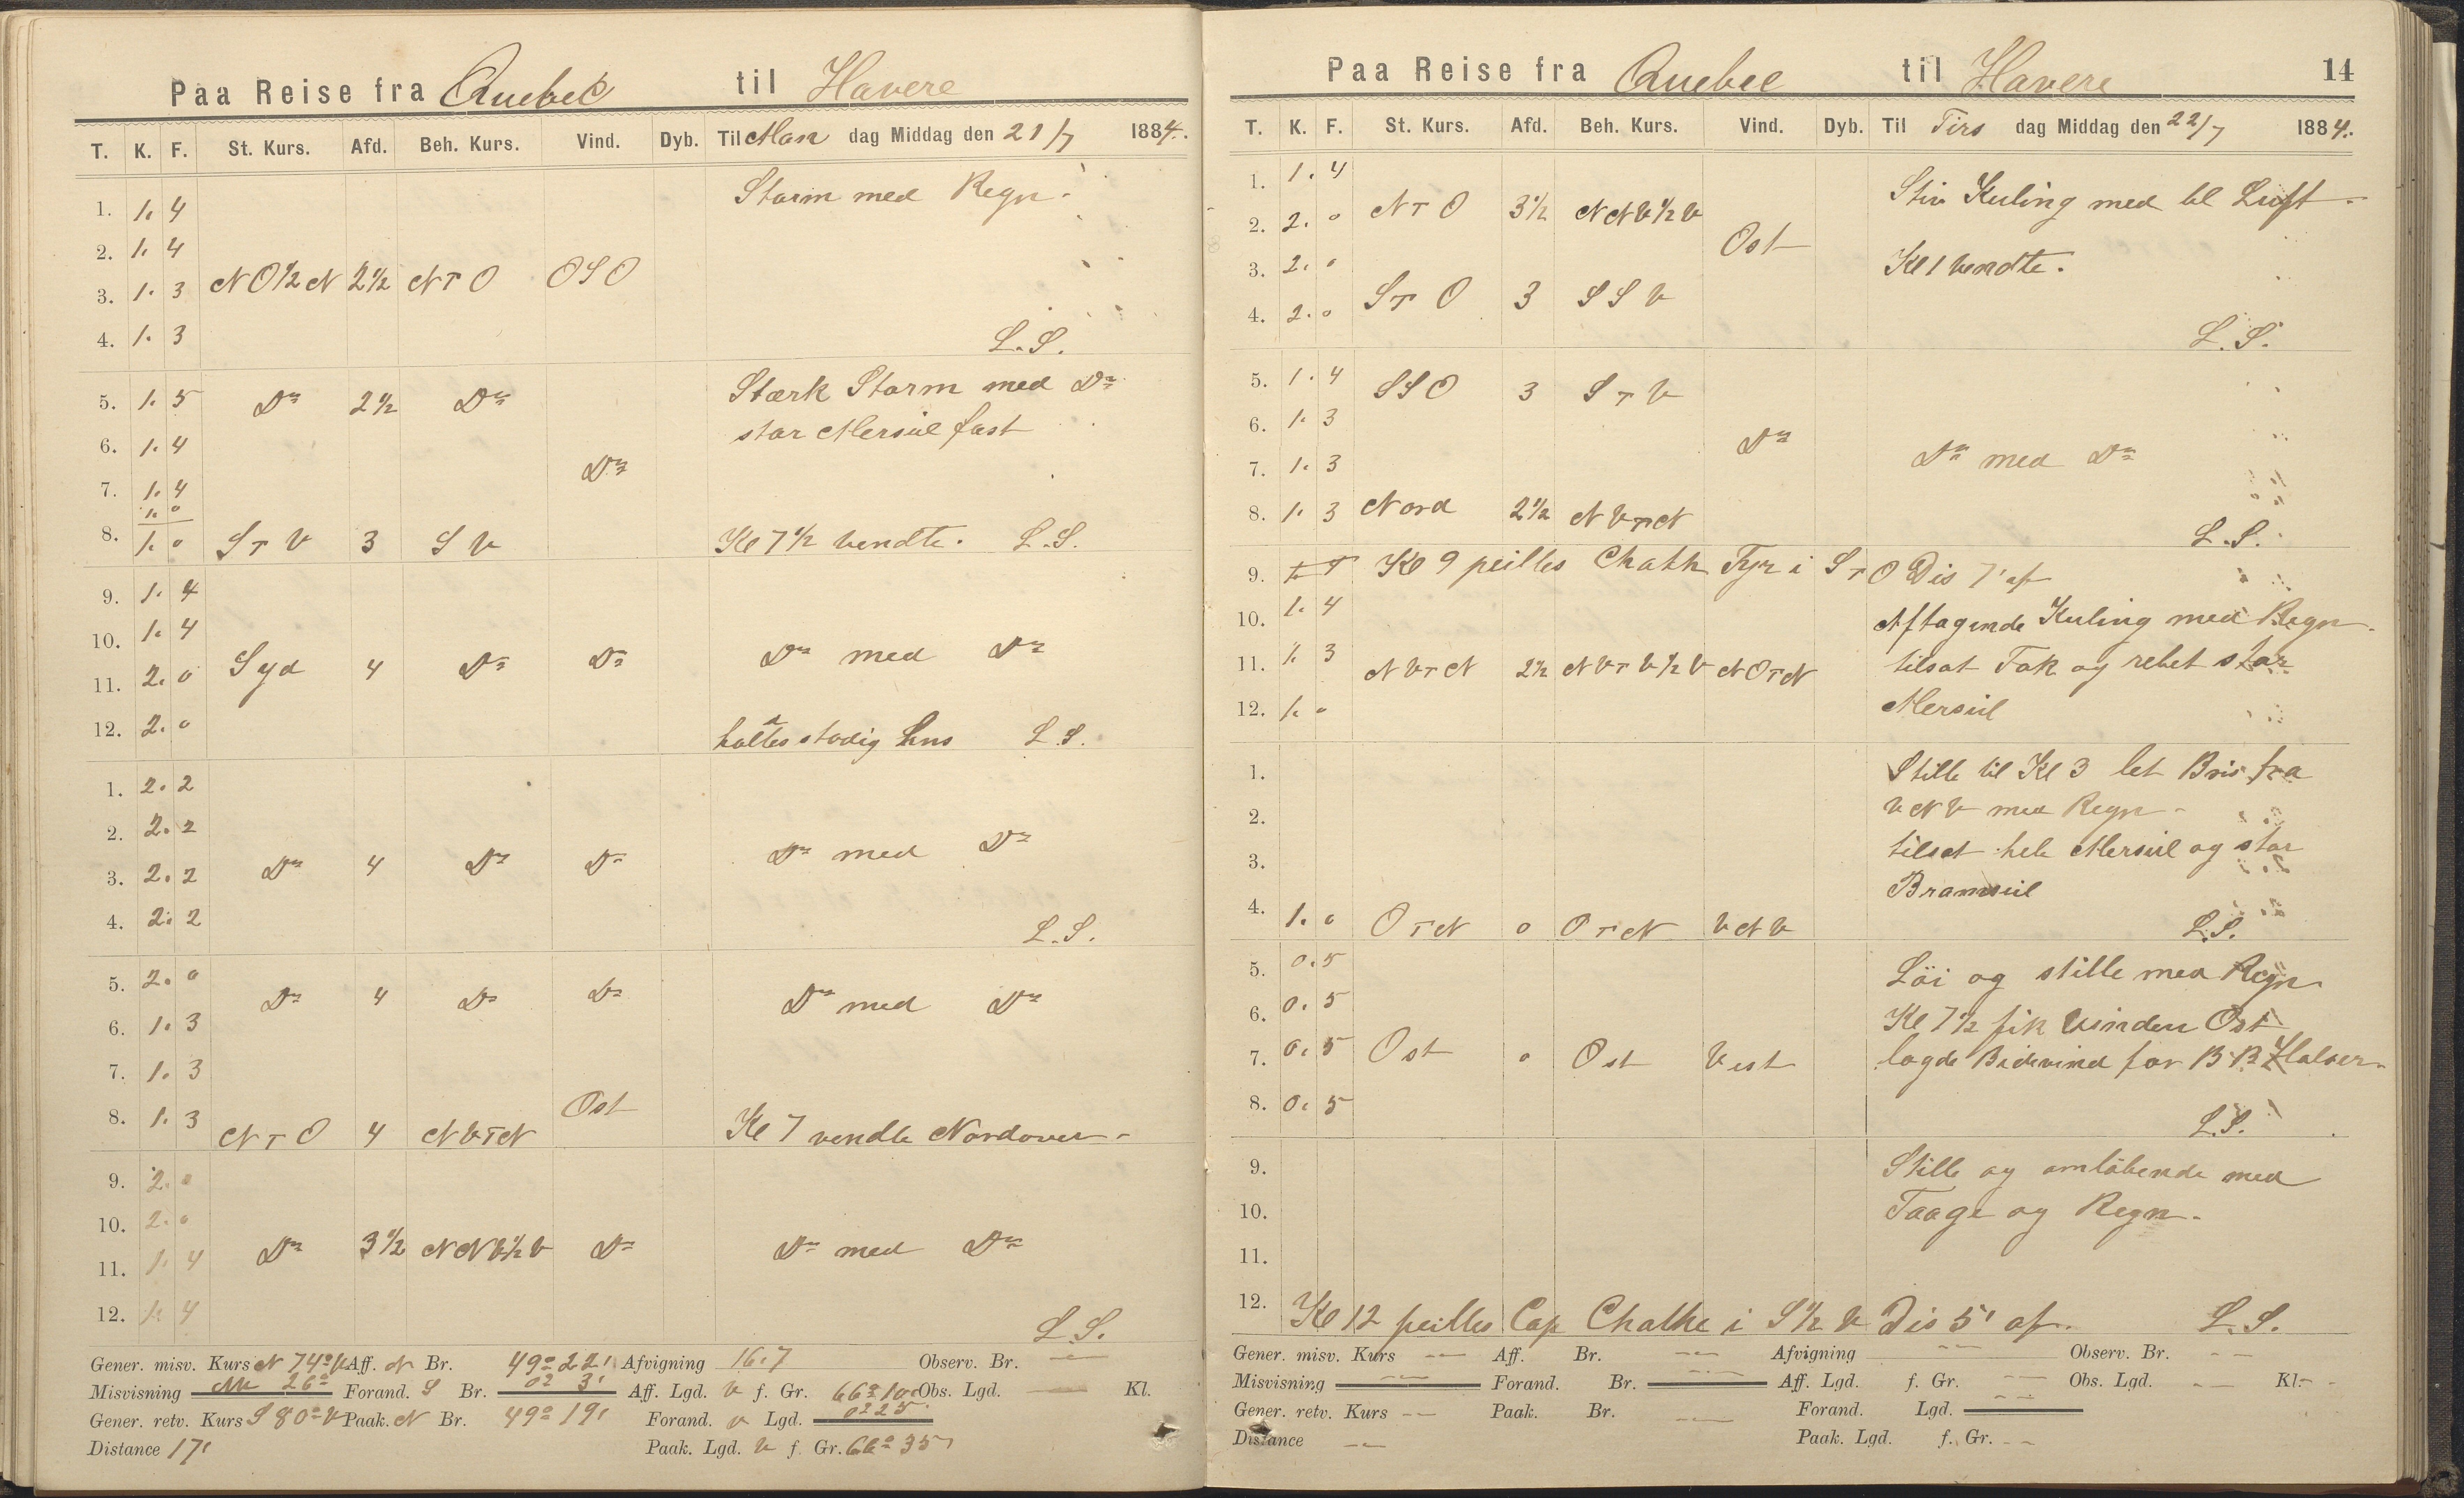 Paa Reise fra Quebec til Havere
T. K. F. St. Kurs. Afd. Beh. Kurs. Vind. Dyb. Til Man dag Middag den 21/7 1884.
Storm med Regn.
1. 1. 4
2. 1. 4
3. 1. 3 NO½N 2½ NTO OSO
4. 1. 3 L.S.
Stærk Storm med Do
5. 1. 5 Do 2½ Do
stor Mersül fast
6. 1. 4
Do
7. 1. 4
1. 0
8. 1. 0 STV 3 SV Kl 7½ vendte. L.S.
9. 1. 4
10. 1. 4
11. 2. 0 Syd 4 Do Do Do med Do
12. 2. 0 holtes stadig Lens L.S.
1. 2. 2
2. 2. 2
3. 2. 2 Do 4 Do Do Do med Do
4. 2. 2 L.S.
5. 2. 0 Do 4 Do Do Do med Do
6. 1. 3
7. 1. 3
Ost
8. 1. 3 NTO 4 NVTN Kl 7 vendte Nordover
9. 2. 0
10. 2. 0
11. 1. 4 Do 3½ NNV½V Do Do med Do
12. 1. 4 L.S.
Gener. misv. Kurs N 74° V Aff. N Br. 49° 22' Afvigning 16.7 Observ. Br. —
Misvisning 26° Forand. S Br. 0° 3' Aff. Lgd. V f. Gr. 66° 10' Obs. Lgd. — Kl.
Gener. retv. Kurs S 80° V Paak. N Br. 49° 19' Forand. V Lgd. 0° 25'
Distance 17' Paak. Lgd. V f. Gr. 66° 35'
Paa Reise fra Quebec til Havere 14
T. K. F. St. Kurs. Afd. Beh. Kurs. Vind. Dyb. Til Tirs dag Middag den 22/7 1884.
1. 1. 4
Stiv Kuling med bl Luft
2. 2. 0 NTO 3½ NNV½V
Ost
3. 2. 0 Kl 1 vendte.
4. 2. 0 STO 3 SSV
L.S.
5. 1. 4 SSO 3 STV
6. 1. 3
Do
7. 1. 3 Do med Do
8. 1. 3 Nord 2½ NVTN
L.S.
9. Kl 9 peilles Chath Fyr i STO Dis 7' af
10. 1. 4 Aftagende Kuling med Regn.
11. 1. 3 NVTN 2½ NVTV½V NOTN tilsat Fok og rebet stor
12. 1. 0 Mersül
1. Stille til Kl 3 let Bris fra
2. VNV med Regn
3. tilsat hele Mersül og stor
Bramsül
4. 1. 0 OTN 0 OTN VNV L.S.
5. 0. 5 Löi og stille med Regn
6. 0. 5 Kl 7½ fik Vinden Ost
7. 0. 5 Ost 0 Ost Vest lagde Bidevind for B.B. Halser
8. 0. 5
L.S.
9. Stille og omlöbende med
10. Taage og Regn.
11.
12. Kl 12 peilles Cap Chathe i S½V Dis 5' af. L.S.
Gener. misv. Kurs — Aff. Br. — Afvigning — Observ. Br. —
Misvisning — Forand. Br. — Aff. Lgd. f. Gr. — Obs. Lgd. — Kl. -
Gener. retv. Kurs — Paak. Br. — Forand. Lgd. —
Distance — Paak. Lgd. f. Gr. —